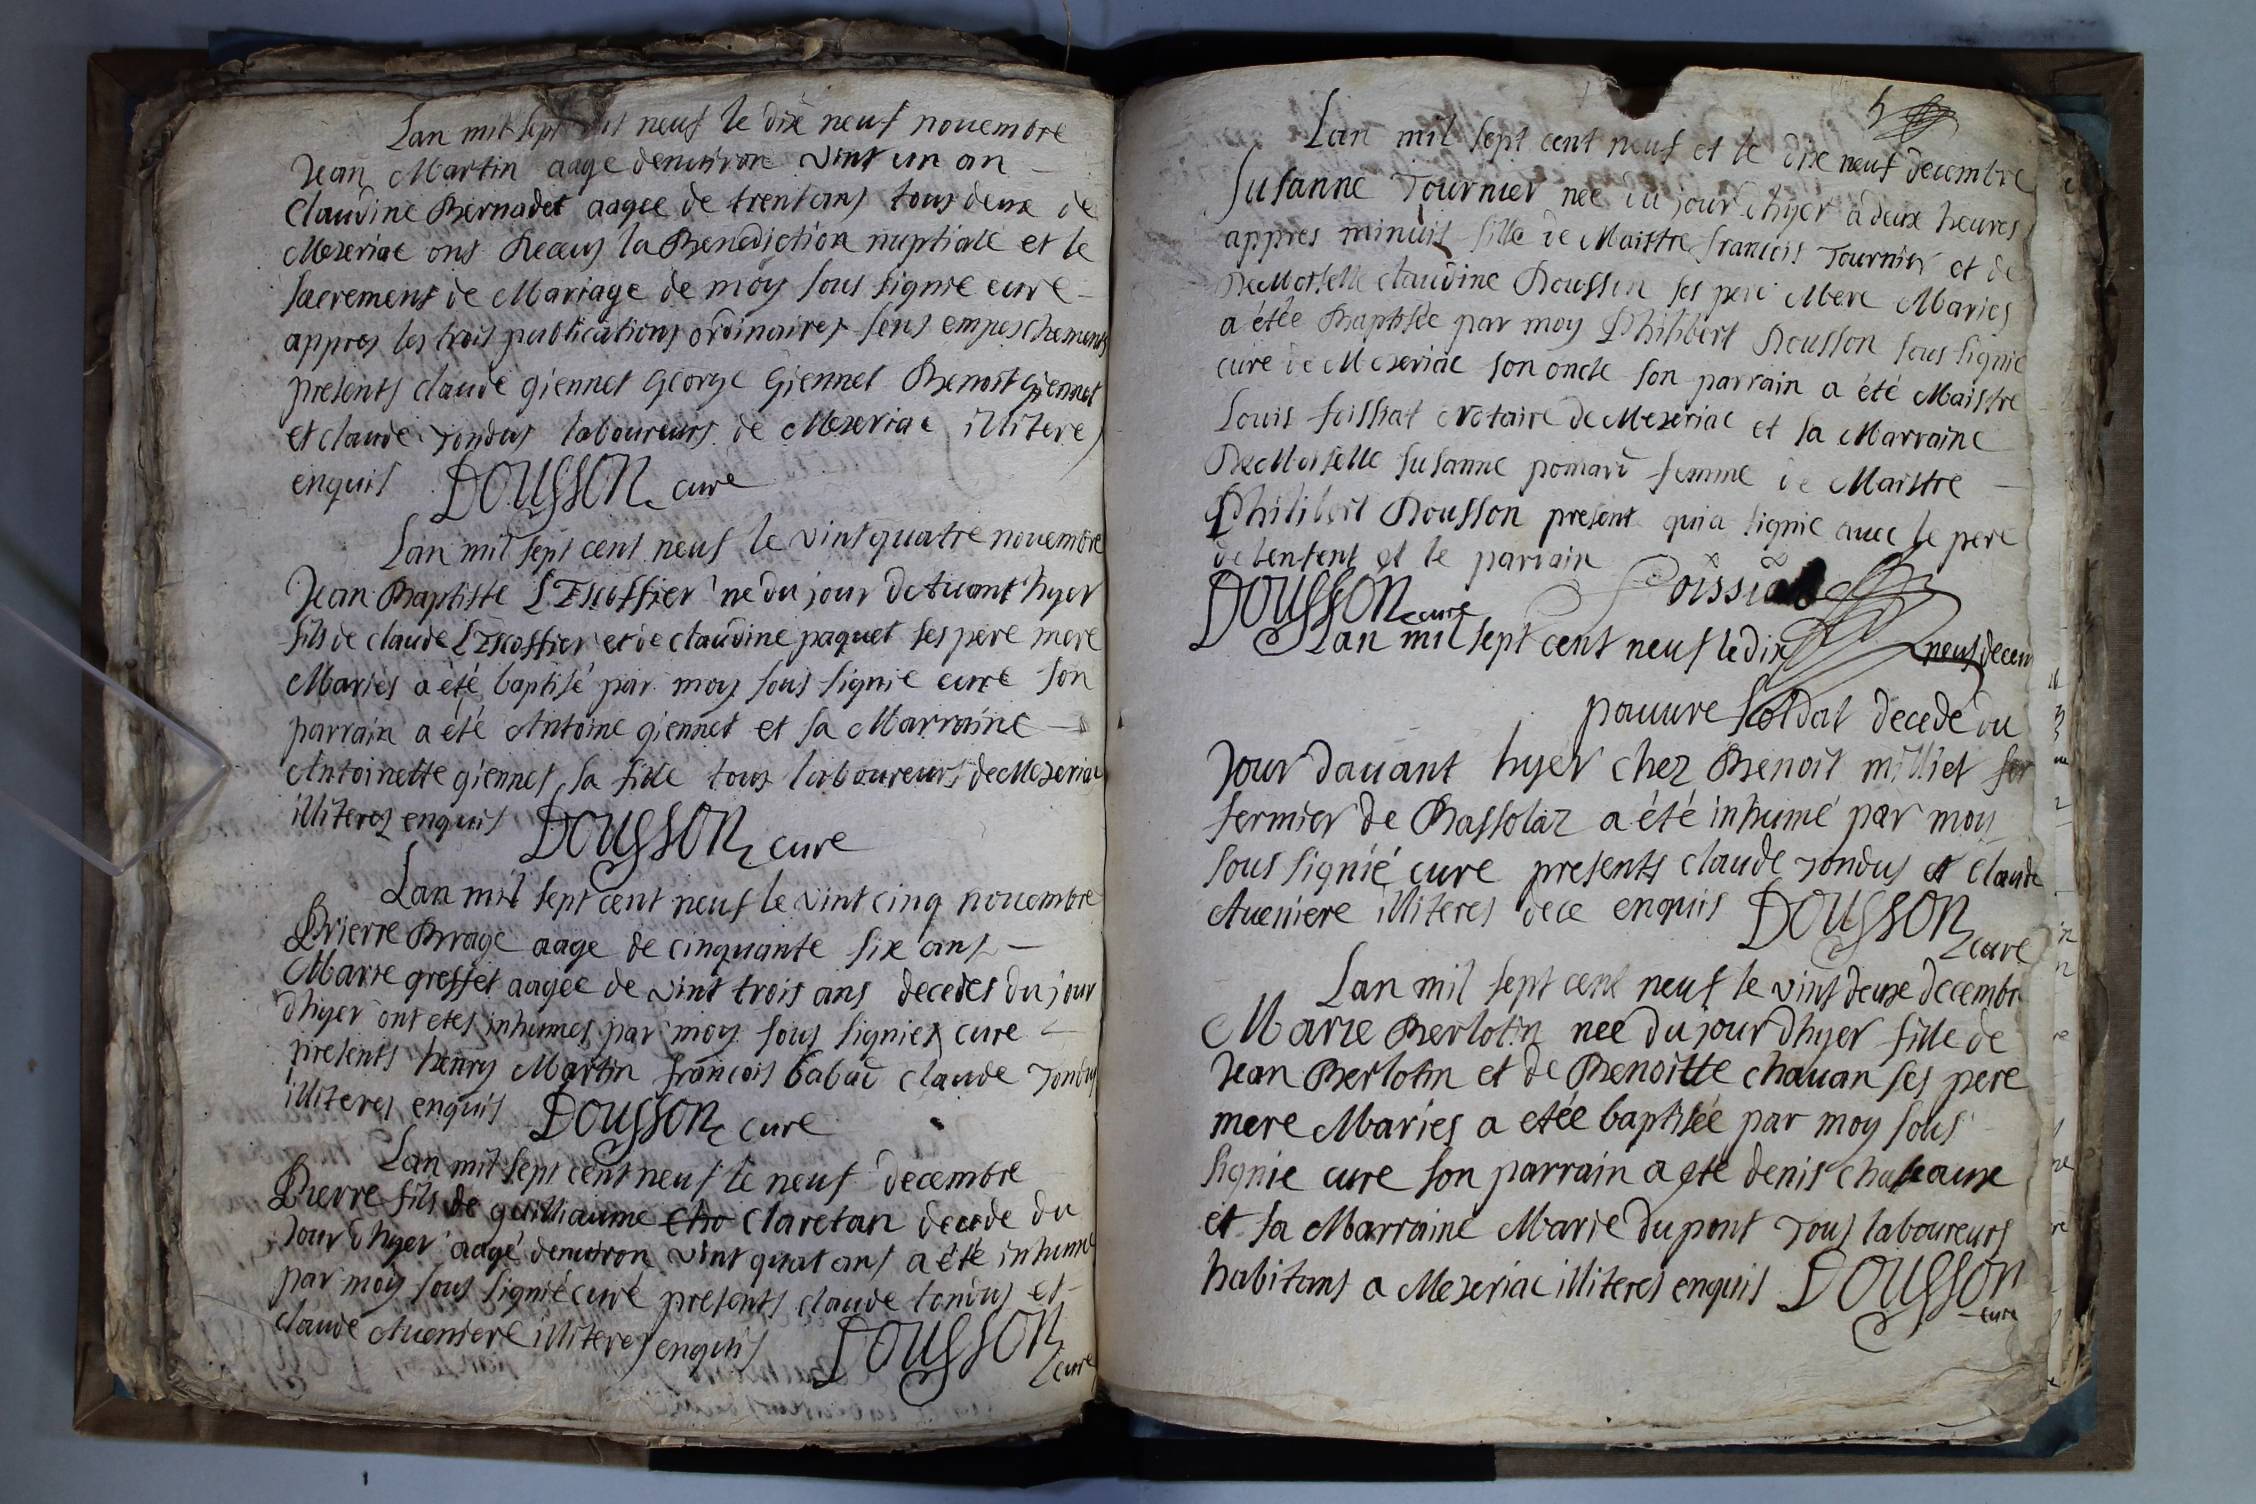 Lan mil sept neuf le dix neuf nouembre
Jean Martin aage denuiron vint un an
Claudine Bernadet aagee de trent ans tous deux de
Mezeriac ons Receus la Benediction nuptiale et le
sacrement de Mariage de moy sous signie cure
appres les trois publications ordinaires sens empeschements
presents claude giennet George Giennet Benoit Giennet
et claude Tondus laboureurs de Mezeriac illiteres
enquis DOUSSON cure
Lan mil sept cent neuf le vint quatre nouembre
Jean Baptiste LEscoffier ne du jour de Auant hyer
fils de claude LEscoffier et de claudine paquet ses pere mere
Maries a été baptisé par moy sous signie cure son
parrain a été Antoine giennet et sa Marraine
Antoinette giennet sa fille tous laboureurs de Mezeriac
illiteres enquis DOUSSON cure
Lan mil sept cent neuf le vint cinq nouembre
Prierre Brage aage de cinquante six ans
Marie gresset aagee de vint trois ans decedes du jour
dhyer ont etes inhumes par moy sous signies cure
presents henry Martin francois babad claude Tondus
illiteres enquis DOUSSON cure
Lan mil sept cent neuf le neuf decembre
Pierre fils de guilliaume cho claretan decede du
Jour dhyer aagé denuiron vint quat ans a été inhumé
par moy sous signié curé presents claude tondus et
claude Aueniere illiteres enquis DOUSSON cure
5
Lan mil sept cent neuf et le dix neuf decembre
Susanne Tournier nee du jour dhyer a deux heures
appres minuit fille de Maistre francois Tournier et de
DeMoiselle claudine Dousson ses pere Mere Maries
a étée Baptisée par moy Philibert Dousson sous signie
cure de Mezeriac son oncle son parrain a été Maistre
Louis foissiat Notaire de Mezeriac et sa Marraine
DeMoiselle susanne pomard femme de Maistre
Philibert Dousson present qui a signie auec le pere
de lenfent et le parrain
DOUSSON cure Foissiat
Lan mil sept cent neuf le dix neuf decem
pauure soldat decedé du
Jour dauant hyer chez Benoit milliet fer
fermier de Bassolaz a été inhumé par moy
sous signié cure presents claude Tondus et claude
Aueniere illiteres dece enquis DOUSSON cure
Lan mil sept cent neuf le vint deuxe decembr
Marie Berlotin nee du jour dhyer fille de
Jean Berlotin et de Benoitte chauan ses pere
mere Maries a etée baptisée par moy sous
signie cure son parrain a ete denis chateaux
et sa Marraine Marie dupont Tous laboureurs
habitans a Mezeriac illiteres enquis DOUSSON
cure